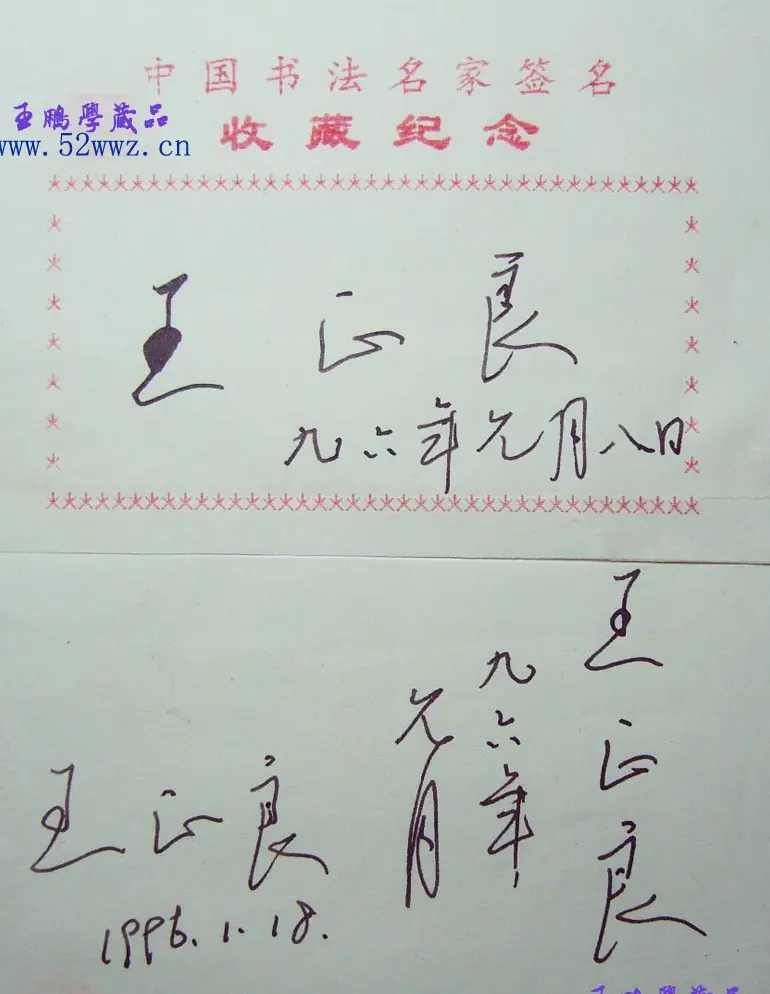 中国书法名家签名
王鹏學藏品
收藏纪念
www.52wwz.cn
王正良
九六年元月八日
王正良
九六年
元月
王正良
1996.1.18.
王鹏學藏品